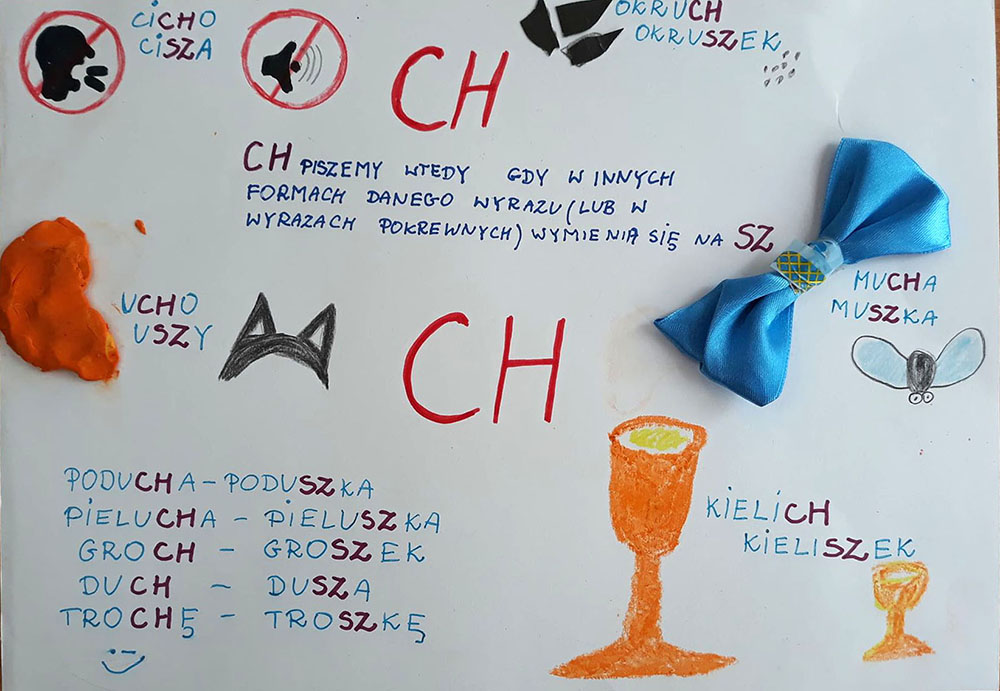 CICHO
CISZA
OKRUCH
OKRUSZEK
CH
CH PISZEMY WTEDY GDY W INNYCH
FORMACH DANEGO WYRAZU (LUB W
WYRAZACH POKREWNYCH) WYMIENIA SIĘ NA SZ
UCHO
USZY
CH
MUCHA
MUSZKA
PODUCHA - PODUSZKA
PIELUCHA - PIELUSZKA
GROCH - GROSZEK
DUCH - DUSZA
TROCHĘ - TROSZKĘ
KIELICH
KIELISZEK